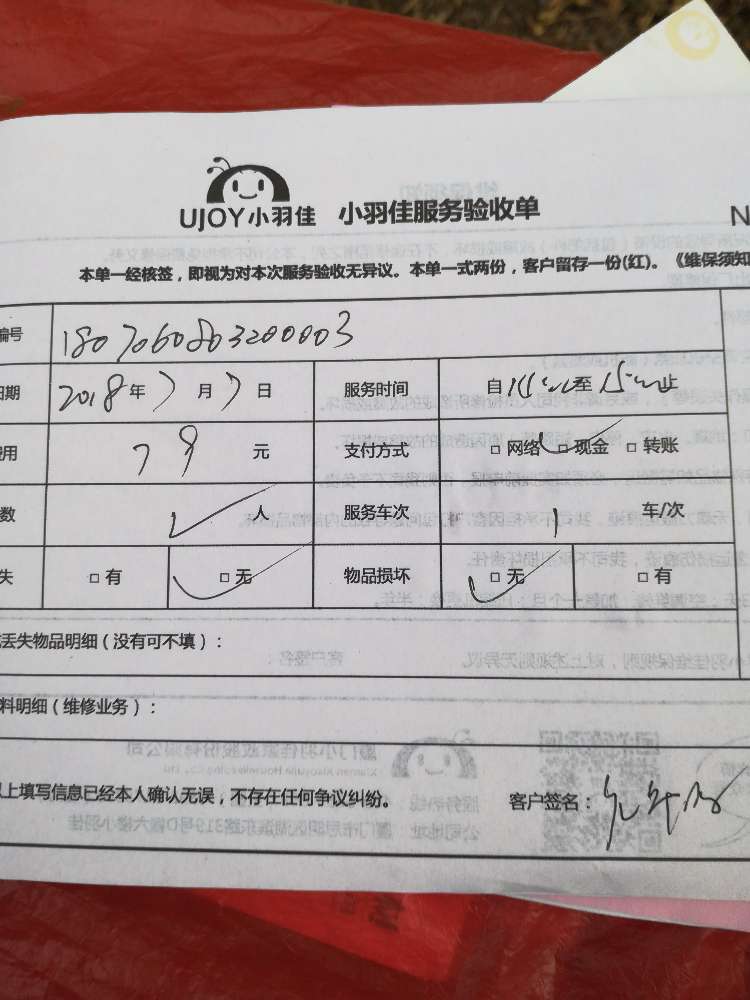 UJOY小羽佳 小羽佳服务验收单
N
本单一经核签，即视为对本次服务验收无异议。本单一式两份，客户留存一份(红)。《维保须知
编号 1807060803200003
日期 2018年7月7日 服务时间 自 至 止
费用 79元 支付方式 □网络 □现金 □转账
数 人 服务车次 1 车/次
失 □有 □无 物品损坏 □无 □有
丢失物品明细（没有可不填）：
料明细（维修业务）：
以上填写信息已经本人确认无误，不存在任何争议纠纷。 客户签名：